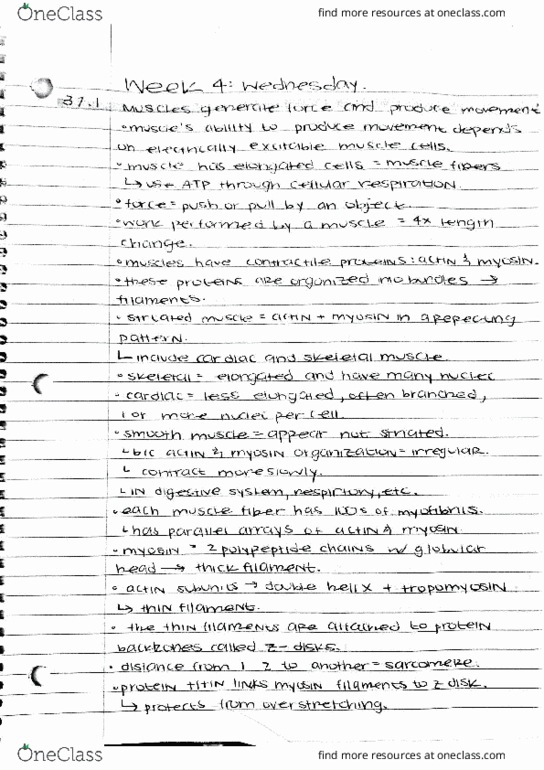 OneClass
find more resources at oneclass.com
Week 4: Wednesday.
37.1 Muscles generate force and produce movement
• muscle's ability to produce movement depends
on electrically excitable muscle cells.
• muscle has elongated cells = muscle fibers
↳ use ATP through cellular respiration
• force = push or pull by an object.
• work performed by a muscle = 4x length
change.
• muscles have contractile proteins: actin & myosin.
• these proteins are organized into bundles →
filaments.
• striated muscle = actin + myosin in a repeating
pattern.
↳ include cardiac and skeletal muscle.
• skeletal = elongated and have many nuclei
• cardiac = less elongated, often branched,
1 or more nuclei per cell.
• smooth muscle = appear not striated.
↳ b/c actin & myosin organization = irregular.
↳ contract more slowly.
↳ in digestive system, respiriory, etc.
• each muscle fiber has 100s of myofibrils.
↳ has parallel arrays of actin & myosin
• myosin = 2 polypeptide chains w/ globular
head → thick filament.
• actin subunits → double helix + tropomyosin
↳ thin filament.
• the thin filaments are attached to protein
backbones called z-disks.
• distance from 1 z to another = sarcomere.
• protein titin links myosin filaments to z disk.
↳ protects from over stretching.
OneClass
find more resources at oneclass.com